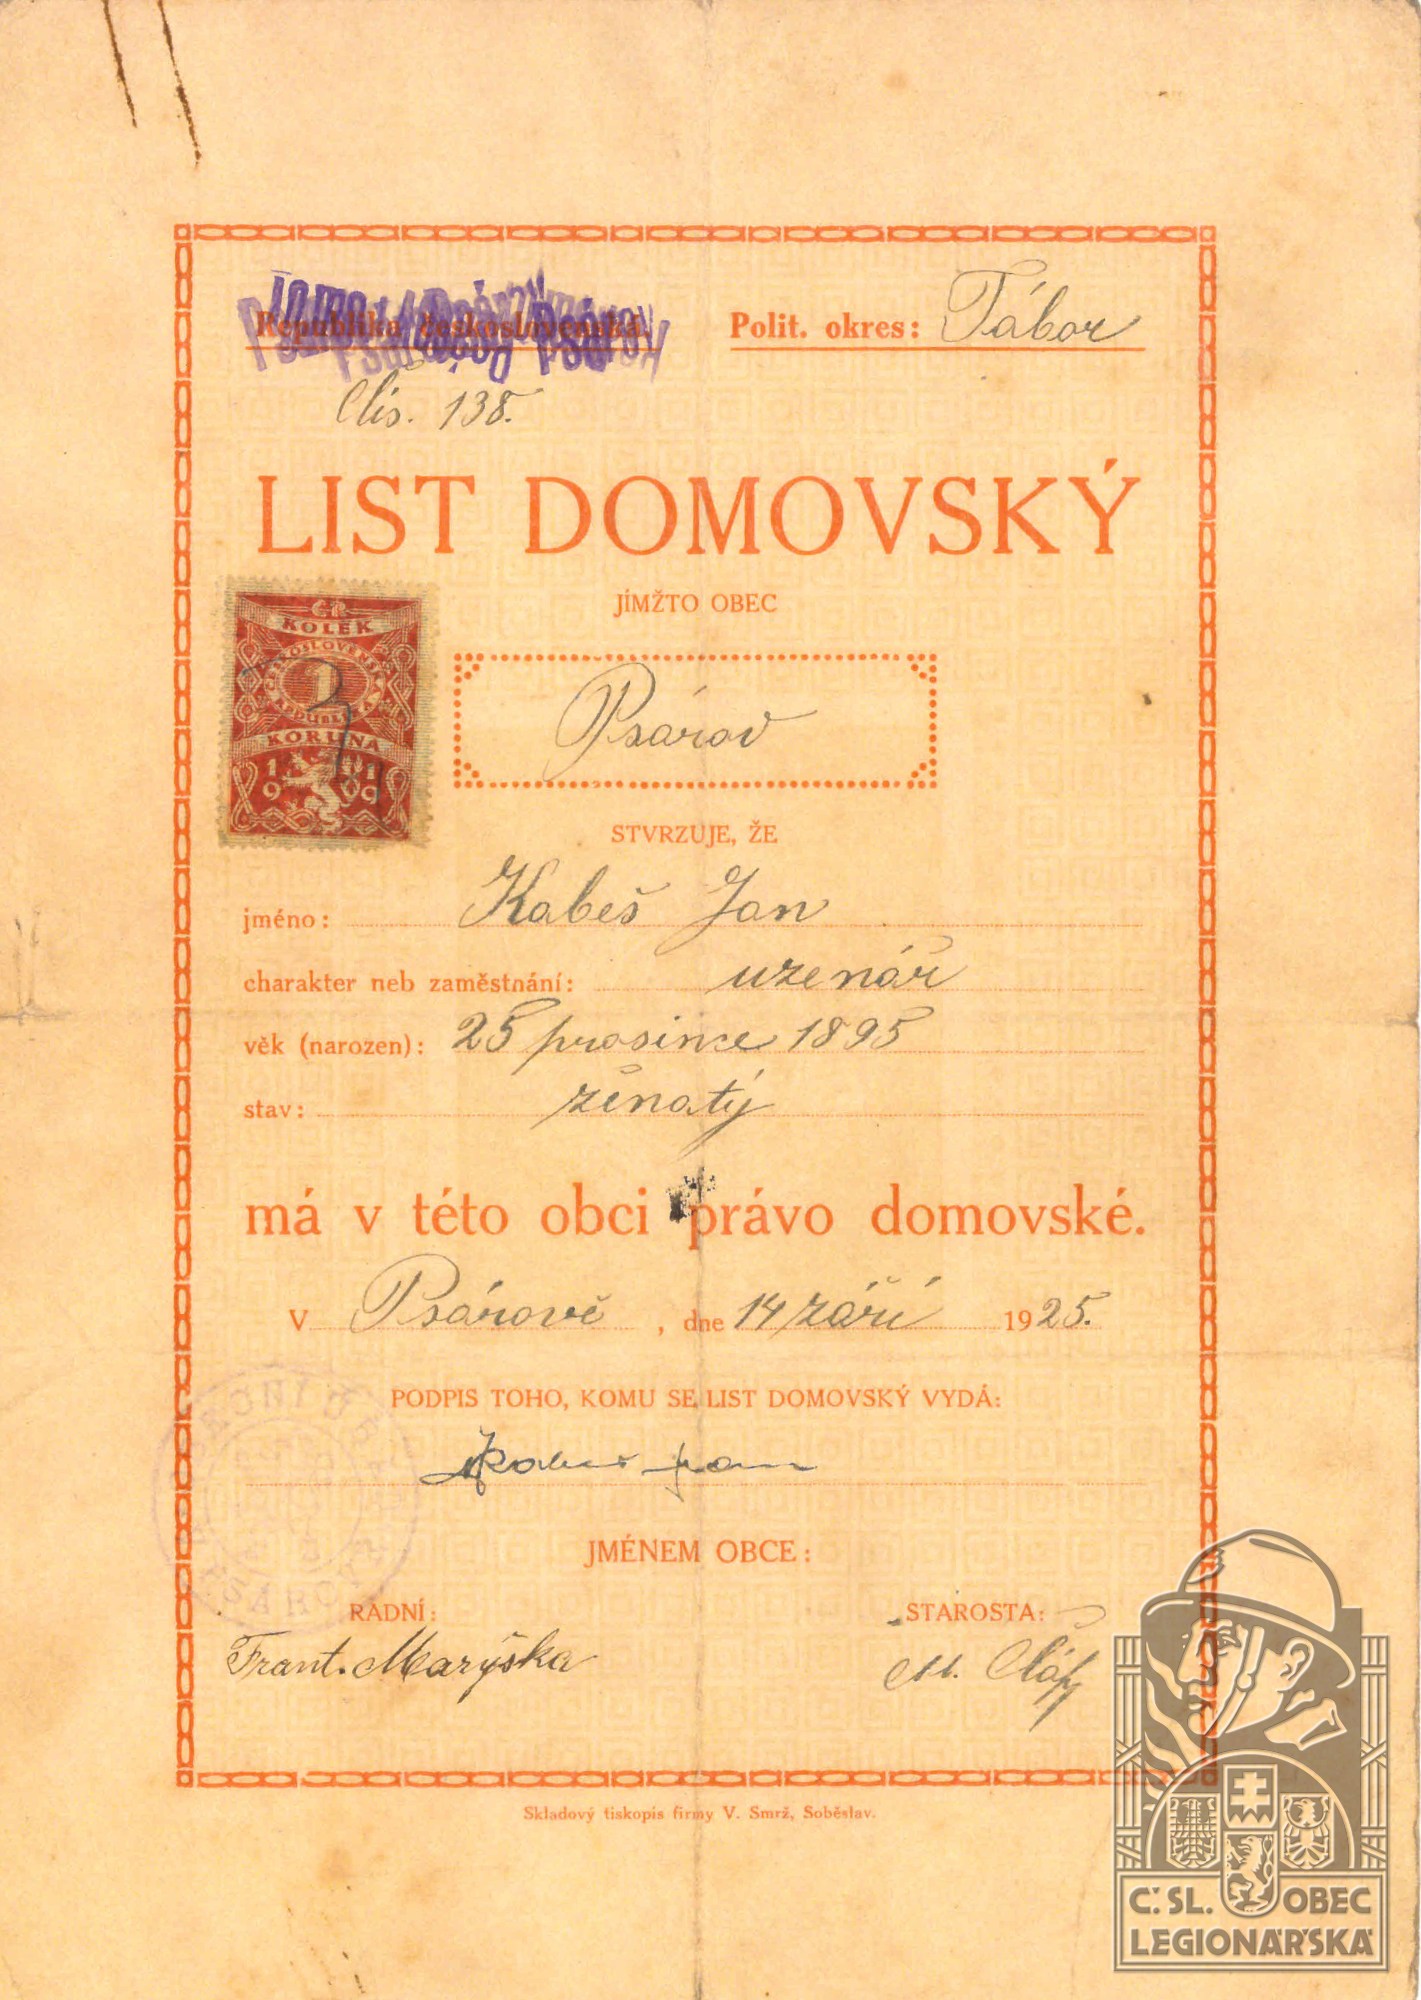 Republika československá. Polit. okres: Tábor
Čís. 138.
LIST DOMOVSKÝ
JÍMŽTO OBEC
ČR
KOLEK
1
KORUNA
1919
Psárov
STVRZUJE, ŽE
jméno: Kabeš Jan
charakter neb zaměstnání: uzenář
věk (narozen): 25 prosince 1895
stav: ženatý
má v této obci právo domovské.
V Psárově, dne 14 září 1925.
PODPIS TOHO, KOMU SE LIST DOMOVSKÝ VYDÁ:
Kabeš Jan
JMÉNEM OBCE:
RADNÍ: STAROSTA:
Frant. Maryška M.
Skladový tiskopis firmy V. Smrž, Soběslav.
Č. SL. OBEC
LEGIONÁŘSKÁ